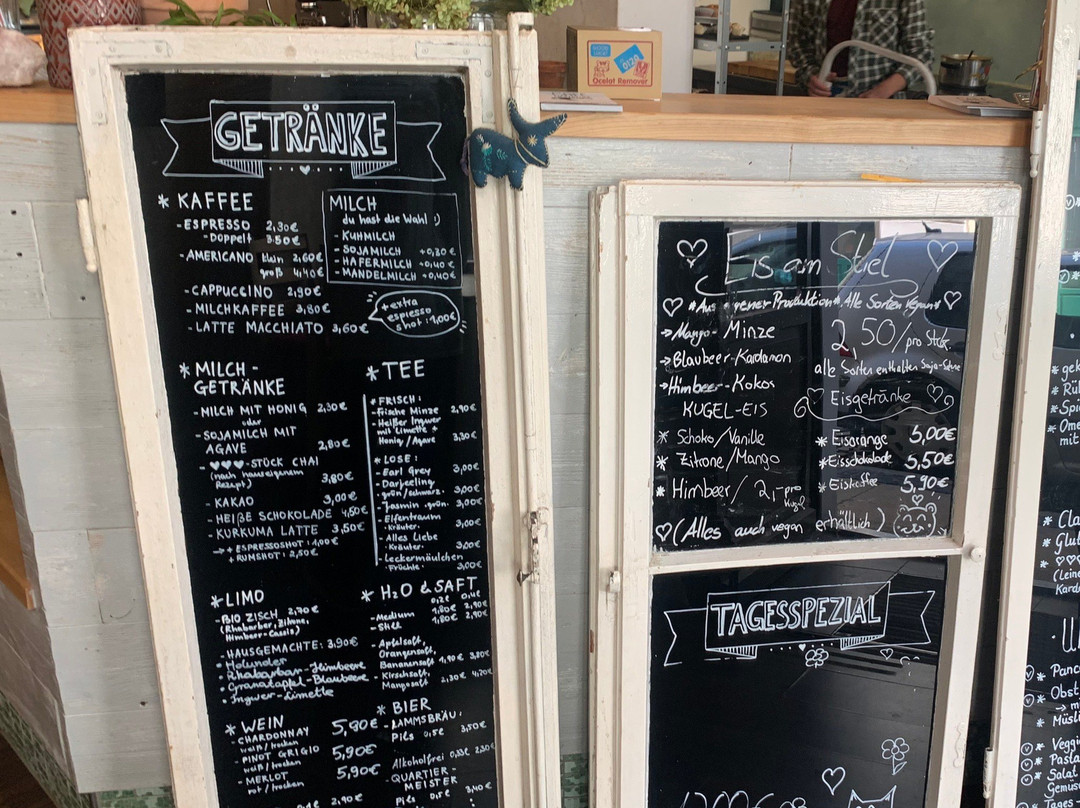 GETRÄNKE
* KAFFEE
- ESPRESSO 2,30€
- Doppelt 3.50€
- AMERICANO klein 2,60€
groß 4,40€
- CAPPUCCINO 2,90€
- MILCHKAFFEE 3,80€
- LATTE MACCHIATO 3,60€
MILCH
du hast die Wahl :)
- KUHMILCH
- SOJAMILCH +0,20€
- HAFERMILCH +0,40€
- MANDELMILCH +0,40€
+ extra
espresso
shot: 1,00€
* MILCH-
GETRÄNKE
- MILCH MIT HONIG 2,30€
oder
- SOJAMILCH MIT
AGAVE 2,80€
- ♥♥♥-STÜCK CHAI
(nach hauseigenem
Rezept) 3,80€
- KAKAO 3,00€
- HEIßE SCHOKOLADE 4,50€
- KURKUMA LATTE 3,50€
→ + ESPRESSOSHOT: 1,00€
+ RUMSHOT: 2,50€
* TEE
* FRISCH:
- Frische Minze 2,90€
- Heißer Ingwer
mit Limette +
Honig/Agave 3,30€
* LOSE:
- Earl Grey 3,00€
- Darjeeling
grün/schwarz. 3,00€
- Jasmin grün. 3,00€
- Elfentraum
Kräuter. 3,00€
- Alles Liebe
Kräuter. 3,00€
- Leckermäulchen
Früchte. 3,00€
* LIMO
- BIO ZISCH 2,70€
(Rhabarber, Zitrone,
Himbeer-Cassis)
- HAUSGEMACHTE: 3,90€
• Holunder
• Rhabarbar-Himbeere
• Granatapfel-Blaubeere
• Ingwer-Limette
* H2O & SAFT
0,2€ 0,4€
- Medium 1,80€ 2,90€
- Still 1,80€ 2,90€
- Apfelsaft,
Orangensaft,
Bananensaft 1,90€ 3,80€
- Kirschsaft,
Mangosaft 2,30€ 4,20€
* WEIN
- CHARDONNAY 5,90€
weiß/trocken
- PINOT GRIGIO 5,90€
weiß/trocken
- MERLOT 5,90€
rot/trocken
2,90€
* BIER
- LAMMSBRÄU:
Pils 0,5€ 3,50€
Alkoholfrei 0,33€ 2,30€
- QUARTIER-
MEISTER
Pils 0,5€ 3,40€
Ocelot Remover
Eis am Stiel
* Aus eigener Produktion * Alle Sorten Vegan
→ Mango-Minze
→ Blaubeer-Kardamon
→ Himbeer-Kokos
2,50/pro Stck.
alle Sorten enthalten Soja-Sahne
KUGEL-EIS
* Schoko/Vanille
* Zitrone/Mango
* Himbeer/ 2,- pro
Kugel
Eisgetränke
* Eisorange 5,00€
* Eisschokolade 5,50€
* Eiskaffee 5,90€
(Alles auch vegan erhältlich)
TAGESSPEZIAL
* Rü
* Spi
* Ome
mit
* Cla
* Glut
(Leine
Kard
Panc
Obst
→ m
Müsli
Veggi
Pasta
Salat
Gemüs
Tages